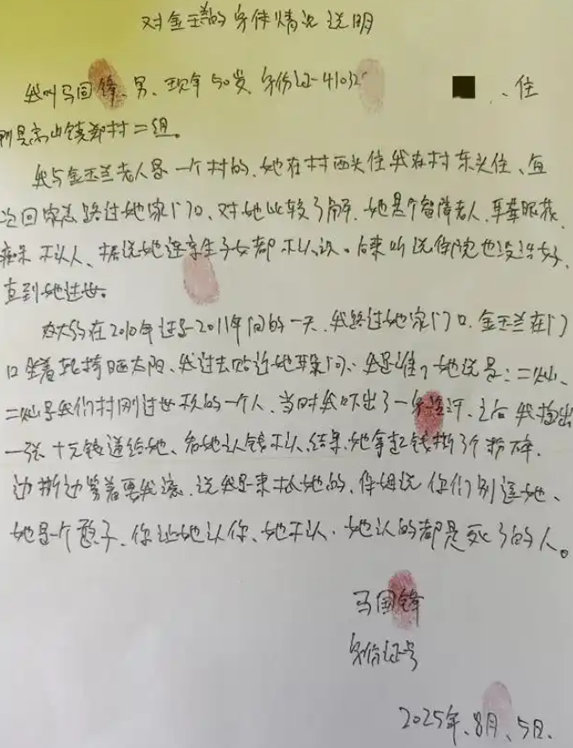 对金玉兰的身体情况说明
我叫马国锋、男、现年50岁、身份证-41032 、住
阴县高山镇郭村二组。
我与金玉兰老人是一个村的,她在村西头住我在村东头住、每
次回家总路过她家门口、对她比较了解、她是个智障老人、耳聋眼花、
痴呆不认人、据说她连亲生子女都不认识。后来听说住院也没治好、
直到她过世。
应大约在2010年还是2011年间的一天、我路过她家门口、金玉兰在门
口坐着轮椅晒太阳、我过去贴近她耳朵问、我是谁,她说是:二灿、
二灿是我们村刚过世不久的一个人、当时我吓出了一身冷汗、之后我掏出
一张十元钱递给她、看她认钱不认、结果、她拿起钱撕了个粉碎、
边撕边骂着要我滚、说我是来抓她的、保姆说你们别逗她、
她是一个憨子、你让她认你、她不认、她认的都是死了的人。
马国锋
身份证号
2025年、8月、5日、